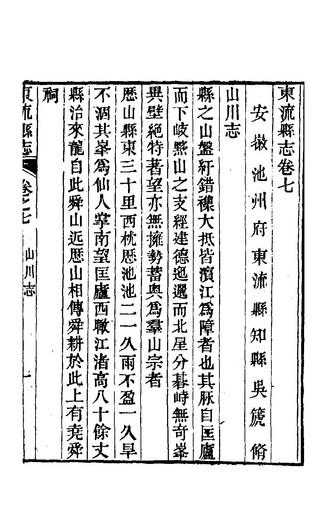 東流縣志卷七
安徽池州府東流縣知縣吳篪脩
山川志
縣之山盤紆錯互大抵皆濵江爲障者也其脉自匡廬
而下岐黟山之支經建德迤邐而北星分碁峙無奇峯
異壁絶特著望亦無擁勢蓄輿爲羣山宗者
歴山縣東三十里西枕歴池池二一久雨不盈一久旱
不涸其峯爲仙人掌南望匡廬西瞰江渚高八十餘丈
縣治來龍自此舜山远歴山相傳舜耕於此上有堯舜
祠
東流縣志
卷之七
山川志
一